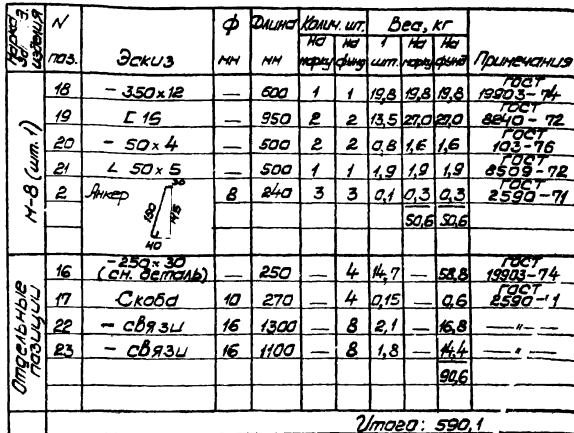 Марка Эл. Э. изделия | N поз. | Эскиз | ф мм | Длина мм | Колич. шт. На марку | На фунд | Вес, кг 1 шт. | На марку | На фунд | Примечания
М-8 (шт. 1)
18 | - 350 х 12 | — | 600 | 1 | 1 | 19,8 | 19,8 | 19,8 | ГОСТ 19903-74
19 | [ 16 | — | 950 | 2 | 2 | 13,5 | 27,0 | 27,0 | ГОСТ 8240-72
20 | - 50 х 4 | — | 500 | 2 | 2 | 0,8 | 1,6 | 1,6 | ГОСТ 103-76
21 | L 50 х 5 | — | 500 | 1 | 1 | 1,9 | 1,9 | 1,9 | ГОСТ 8509-72
2 | Анкер 30 150 40 | 8 | 240 | 3 | 3 | 0,1 | 0,3 | 0,3 | ГОСТ 2590-71
50,6 | 50,6
Отдельные позиции
16 | - 250 х 30 (см. деталь) | — | 250 | — | 4 | 14,7 | — | 58,8 | ГОСТ 19903-74
17 | Скоба | 10 | 270 | — | 4 | 0,15 | — | 0,6 | ГОСТ 2590-71
22 | - связи | 16 | 1300 | — | 8 | 2,1 | — | 16,8 | — " —
23 | - связи | 16 | 1100 | — | 8 | 1,8 | — | 14,4 | — " —
90,6
Итого: 590,1